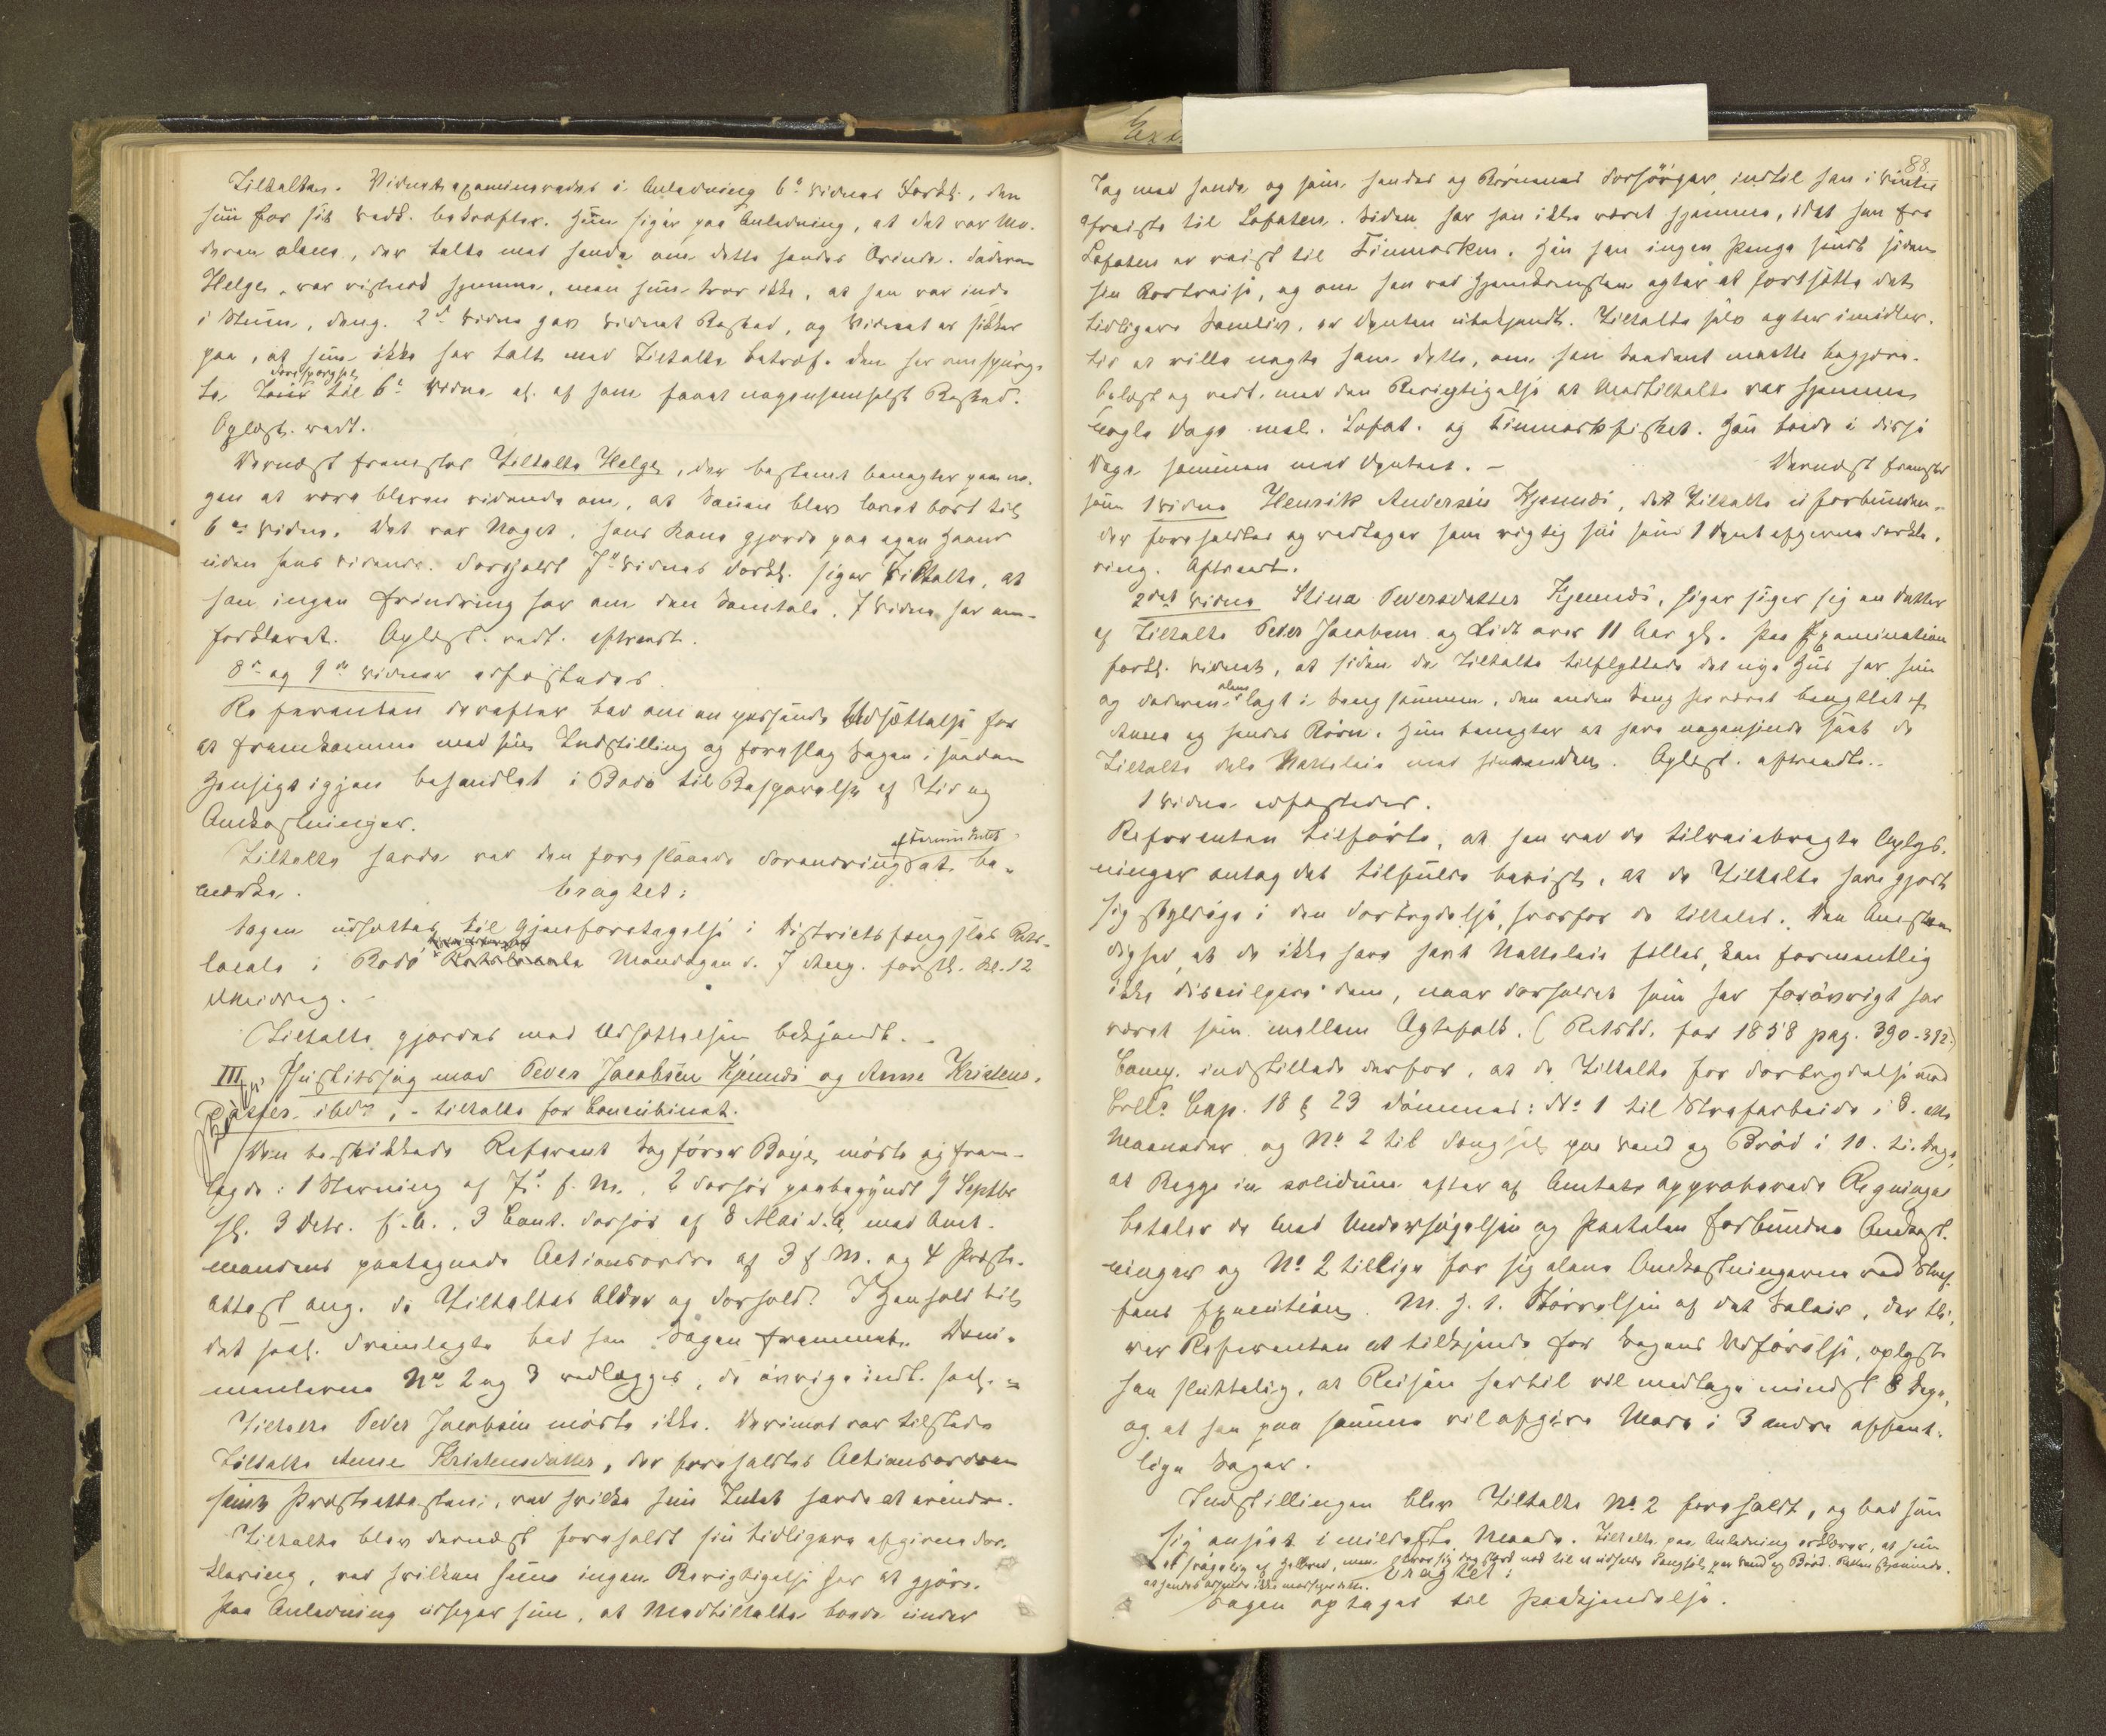 Tiltalte. Vidnet examineredes i Anledning 6te Vidnes Forkl., den
hun for sit Vedk. bekræfter. Hun siger paa Anledning, at det var Mo-
deren alene, der talte med hende om dette hendes Ærinde. Faderen
Helge, var vistnok hjemme, men hun tror ikke, at han var inde
i Stuen, deng. 2det Vidne gav Vidnet Besked, og Vidnet er sikker
paa, at hun ikke har talt med Tiltalte betræf. den her omspurg-
te
Forespørgsel
til 6te Vidne el. af ham faaet nogensomhelst Besked.
Oplæst. vedt.
Dernæst fremstod Tiltalte Helge, der bestemt benegter paa no-
gen at være bleven vidende om, at Sauen blev lovet bort til
6te Vidne. Det var Noget, hans Kone gjorde paa egen Haand
uden hans Vidende. Foreholdt 7de Vidnes Forkl. siger Tiltalte, at
han ingen Erindring har om den Samtale, 7 Vidne har om-
forklaret. Oplæst. vedt. aftraadt.
8de og 9de Vidner edfæstedes.
Referenten derefter bad om en passende Udsættelse for
at fremkomme med sin Indstilling og foreslog Sagen i saadan
Hensigt igjen behandlet i Bodø til Besparelse af Tid og
Omkostninger.
Tiltalte havde ved den foreslaaede Forandring
af Thinget Intet
at be-
mærke. Eragtet:
Sagen udsættes til Gjenforetagelse i Districtsfængslets Rets-
locale i Bodø Mandagen d. 7 Aug. førstk. Kl. 12
Middag.
Tiltalte gjordes med Udsættelsen bekjendt.
III Justitssag mod Peder Jacobsen Kjemnæs og Anne Kristens-
datter ibdm, – tiltalte for Concubinat.
Den beskikkede Referent Sagfører Boye mødte og frem-
lagde: 1 Stevning af 7de f. M., 2 Forhør paabegyndt 9 Septbr
sl. 3 Octr. f. A., 3 Cont. Forhør af 8 Mai d. A. med Amt-
mandens paategnede Actionsordre af 3 f. M. og 4 Præste-
attest ang. de Tiltaltes Alder og Forhold. I Henhold til
det saal. Fremlagte bad han Sagen fremmet. Docu-
menterne No 2 og 3 vedlægges, de øvrige indt. saal. =
Tiltalte Peder Jacobsen mødte ikke. Derimod var tilstede
Tiltalte Anne Kristensdatter, der foreholdtes Actionsordren
samt Præsteattesten, ved hvilke hun Intet havde at erindre.
Tiltalte blev dernæst foreholdt sin tidligere afgivne For-
klaring, ved hvilken hun ingen Berigtigelse har at gjøre.
Paa Anledning udsiger hun, at Medtiltalte boede under
88.
Tag med hende og som hendes og Børnenes Forsørger, indtil han i Vinter
afreiste til Lofoten. Siden har han ikke været hjemme, idet han fra
Lofoten er reist til Finmarken. Hun har ingen Penge sendt siden
sin Bortreise, og om han ved Hjemkomsten agter at fortsætte det
tidligere Samliv, er Deponenten ubekjendt. Tiltalte selv agter imidler-
tid at ville negte ham dette, om han Saadant maatte begjære.
Oplæst og vedt. med den Berigtigelse at Medtiltalte var hjemme
nogle Dage mel. Lofot- og Finmarkfisket. Han boede i disse
Dage sammen med Deponenten. – Dernæst fremstod
som 1 Vidne Henrik Andersen Kjemnæs, de Tiltalte uforbunden,
der foreholdtes og vedtager som rigtig sin som 1 Deponent afgivne Forkla-
ring. Aftraadt.
2det Vidne Stina Pedersdatter Kjemnæs, siger sig en Datter
af Tiltalte Peder Jacobsen og lidt over 11 Aar gl. Paa Examination
forkl. Vidnet, at siden de Tiltalte tilflyttede det nye Hus har hun
og Faderen
alene
lagt i Seng sammen, den anden Seng har været benyttet af
Anne og hendes Børn. Hun benegter at have nogensinde seet de
Tiltalte dele Natteleie med hinanden. Oplæst. aftraadte.
1 Vidne edfæstedes.
Referenten tilførte, at han ved de tilveiebragte Oplys-
ninger antog det tilfulde bevist, at de Tiltalte have gjort
sig skyldige i den Forbrydelse, hvorfor de tiltales. Den Omstæn-
dighed, at de ikke have havt Natteleie fælles, kan formentlig
ikke disculpere dem, naar Forholdet som her forøvrigt har
været som mellem Ægtefolk. (Retstd. for 1858 pag. 390-392.)
Comp. indstillede derfor, at de Tiltalte for Forbrydelse mod
Crl's Cap. 18 § 23 dømmes: No 1 til Strafarbeide i 8 otte
Maaneder og No 2 til Fængsel paa Vand og Brød i 10 ti Dage,
at Begge in solidum efter af Amtets approberede Regninger
betaler de med Undersøgelsen og Paatalen forbundne Omkost-
ninger og No 2 tillige for sig alene Omkostningerne ved Straf-
fens Execution. M. H. t. Størrelsen af det Salair, der bli-
ver Referenten at tilkjende for Sagens Udførelse, oplyste
han sluttelig, at Reisen hertil vil medtage mindst 8 Dage,
og at han paa samme vil afgive Møde i 3 andre offent-
lige Sager.
Indstillingen blev Tiltalte No 2 foreholdt, og bad hun
sig anseet i mildeste Maade. Tiltalte paa Anledning erklærer, at hun
er svagelig af Helbred, men tror sig dog stærk nok til at udholde Fængsel paa Vand og Brød.
at hendes Udseende ikke modsiger dette.
Eragtet:
Sagen optages til Paakjendelse.